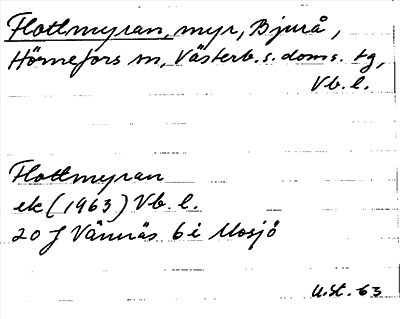 Flottmyran, myr, Bjurå,
Hörnefors sn, Västerb. s. doms. tg,
Vb. l.
Flottmyran
ek (1963) Vb. l.
20 J Vännäs 6 i Mosjö
U.St. 63